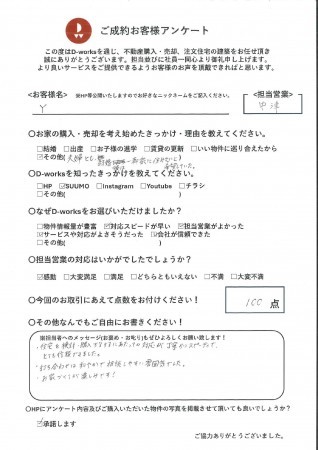 ご成約お客様アンケート
この度はD-worksを通じ、不動産購入・売却、注文住宅の建築をお任せ頂き
誠にありがとうございます。担当並びに社員一同心より御礼申し上げます。
より良いサービスをご提供できるようお客様のお声を頂戴できればと思います。
<お客様名> ※HP等公開いたしますのでお好きなニックネームをご記入ください。 <担当営業>
Y 中津
〇お家の購入・売却を考え始めたきっかけ・理由を教えてください。
□結婚 □出産 □お子様の進学 □賃貸の更新 □いい物件に巡り合えたから
☑その他(
〇D-worksを知ったきっかけを教えてください。
□HP ☑SUUMO □Instagram □Youtube □チラシ
□その他( )
〇なぜD-worksをお選びいただけましたか?
□物件情報量が豊富 ☑対応スピードが早い ☑担当営業がよかった
☑サービスや対応がよさそうだった ☑会社が信頼できた
□その他( )
〇担当営業の対応はいかがでしたでしょうか?
☑感動 □大変満足 □満足 □どちらともいえない □不満 □大変不満
〇今回のお取引にあえて点数をお付けください! 100 点
〇その他なんでもご自由にお書きください!
※担当者へのメッセージ(お褒め・お叱り)もぜひよろしくお願い致します!
・住宅を検討・購入するにあたっての対応が丁寧かつスピーディで、
とても信頼できました。
・打ち合わせは和やかで相談しやすい雰囲気でした。
・お家づくりが楽しみです!
〇HPにアンケート内容及びご購入いただいた物件の写真を掲載させて頂いても良いでしょうか?
☑承諾します
ご協力ありがとうございました。